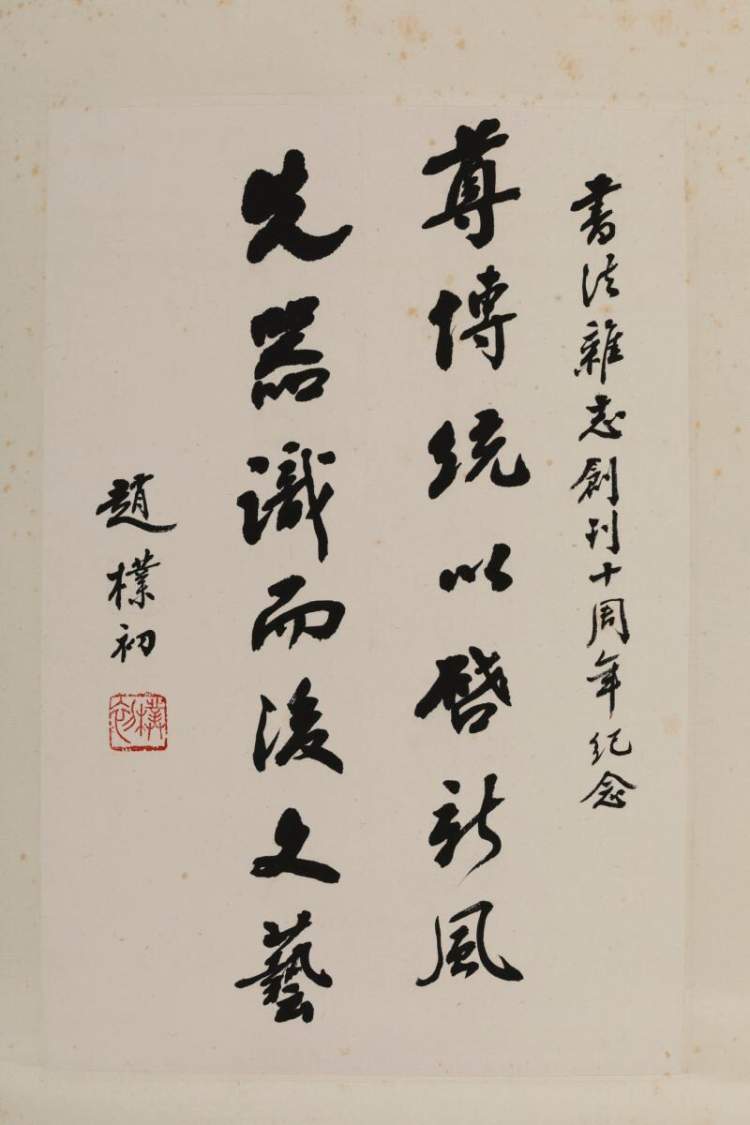 書法雜志創刊十周年紀念
尊傳統以啓新風
先器識而後文藝
趙樸初
樸初